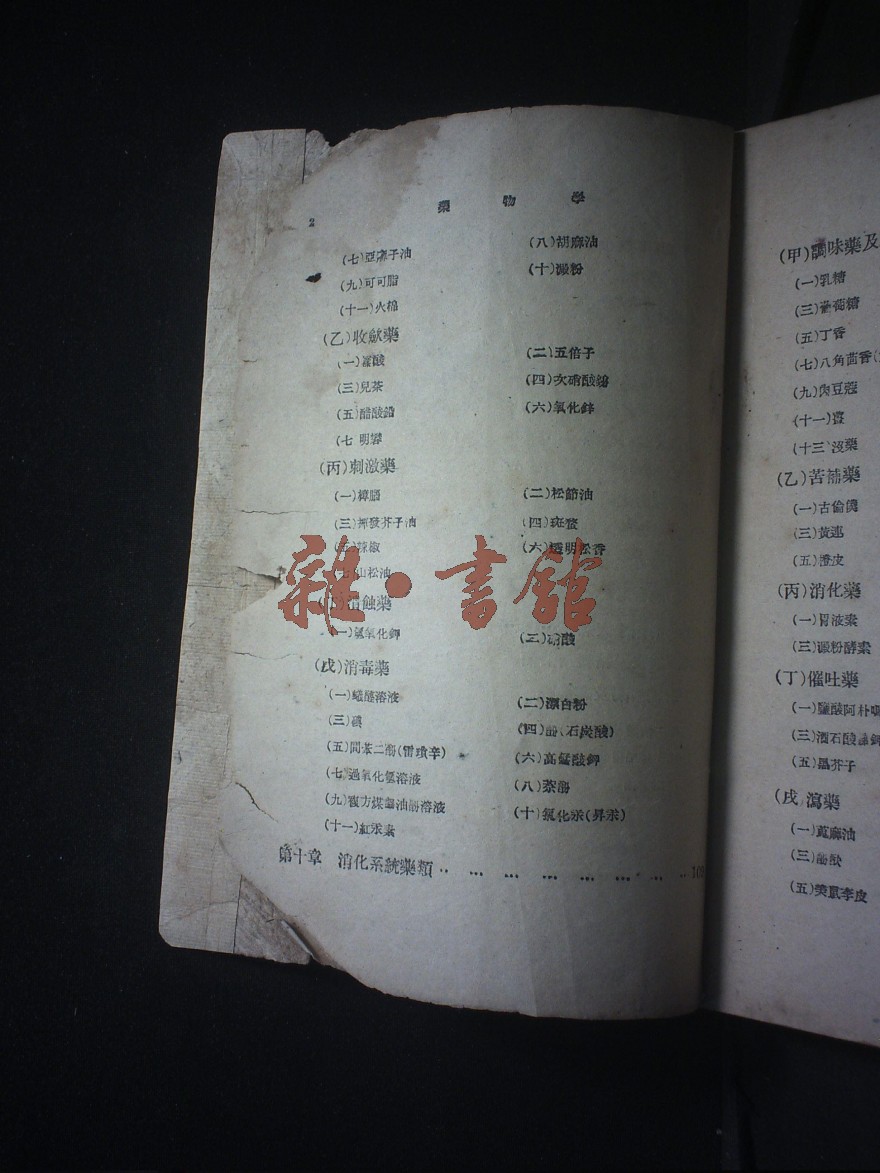 2
藥物學
(七)亞麻子油 (八)胡麻油
(九)可可脂 (十)澱粉
(十一)火棉
(乙)收歛藥
(一)鞣酸 (二)五倍子
(三)兒茶 (四)次硝酸鉍
(五)醋酸鉛 (六)氧化鋅
(七 明礬
(丙)刺激藥
(一)樟腦 (二)松節油
(三)揮發芥子油 (四)斑蝥
(五)辣椒 (六)透明松香
(七)山松油
雜·書館
蝕藥
(一)氫氧化鉀 (二)硝酸
(戊)消毒藥
(一)蟻醛溶液 (二)漂白粉
(三)碘 (四)酚(石炭酸)
(五)間苯二酚(雷瑣辛) (六)高錳酸鉀
(七)過氧化氫溶液 (八)萘酚
(九)複方煤餾油酚溶液 (十)氯化汞(昇汞)
(十一)紅汞素
第十章 消化系統藥類 ………………… 10
(甲)調味藥及
(一)乳糖
(三)葡萄糖
(五)丁香
(七)八角茴香
(九)肉豆蔻
(十一)薑
(十三)沒藥
(乙)苦補藥
(一)古倫僕
(三)黃連
(五)橙皮
(丙)消化藥
(一)胃液素
(三)澱粉酵素
(丁)催吐藥
(一)鹽酸阿朴嗎
(三)酒石酸銻鉀
(五)黑芥子
(戊)瀉藥
(一)蓖麻油
(三)酚酞
(五)美鼠李皮